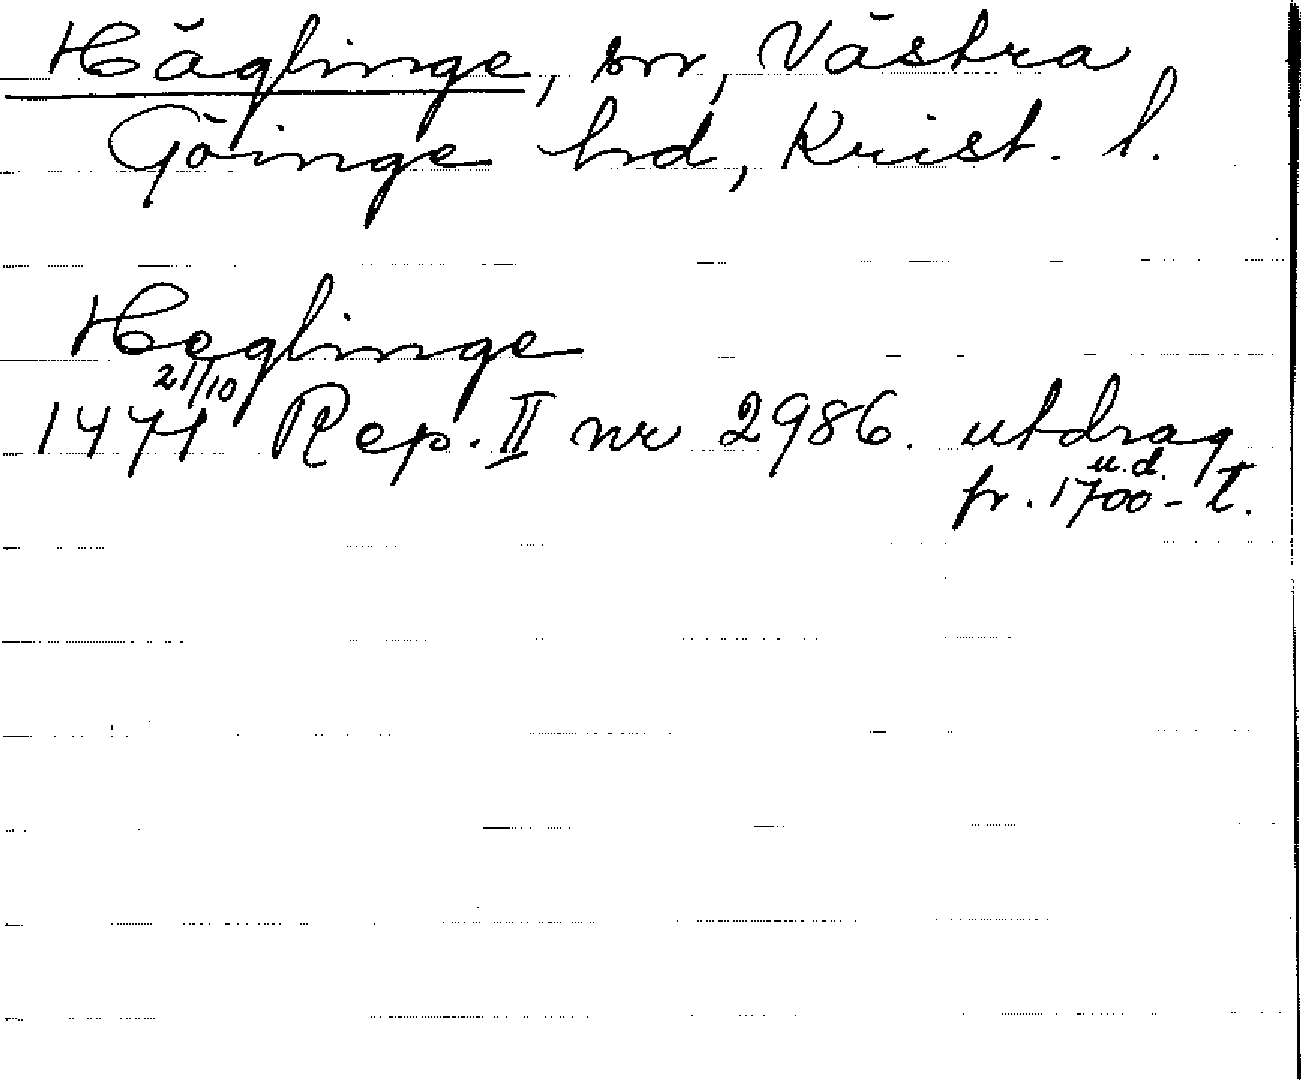 Häglinge, sn, Västra
Göinge hd, Krist. l.
Heglinge
1471 21/10 Rep. II nr 2986. utdrag
u.d.
fr. 1700-t.